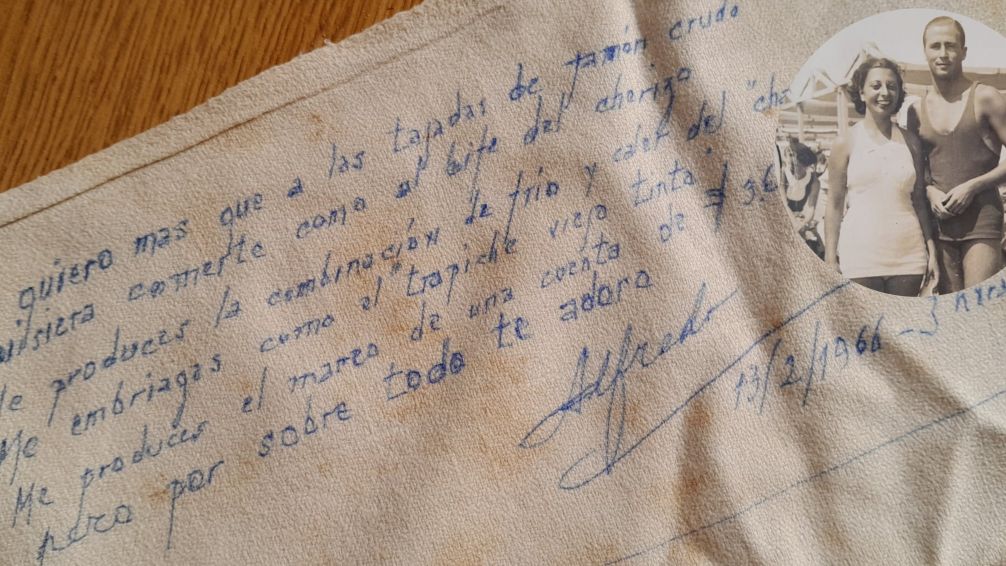 quiero mas que a las tajadas de jamón crudo
quisiera comerte como al bife del chorizo
Me produces la combinación de frío y calor del "cha
Me embriagas como el "trapiche viejo tinto"
Me produces el mareo de una cuenta de $
pero por sobre todo te adoro
Alfredo
13/2/1966 - 3